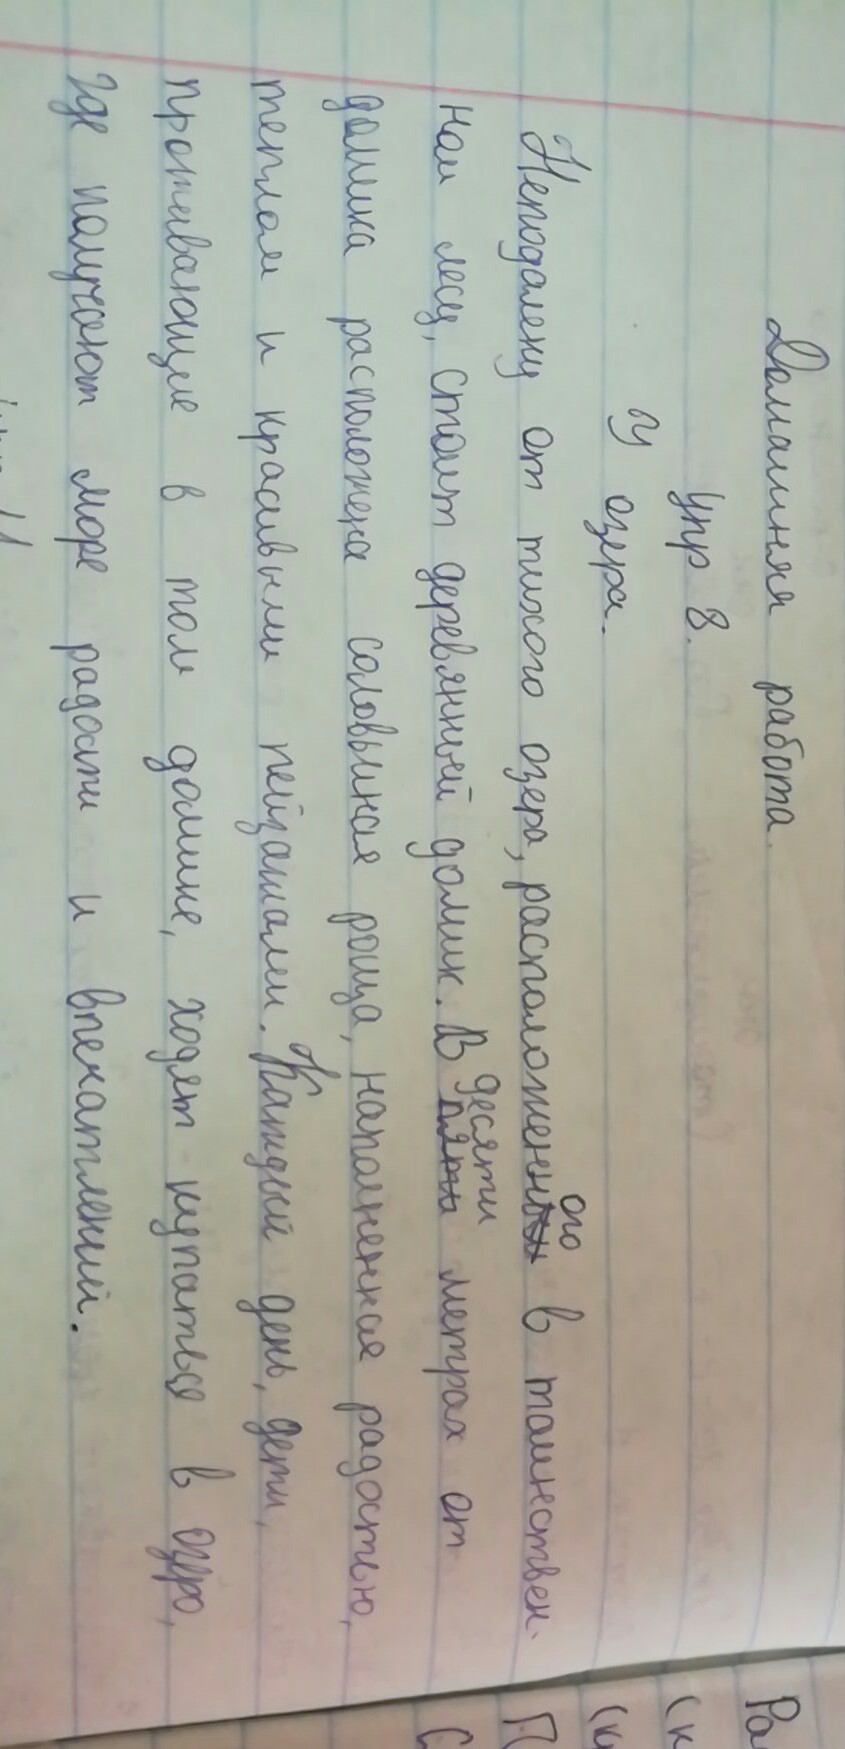 Домашняя работа.
Упр 8.
У озера.
Неподалеку от тихого озера, расположенного в таинствен-
ном лесу, стоит деревянный домик. В десяти метрах от
домика расположена соловьиная роща, наполненная радостью,
теплом и красивыми пейзажами. Каждый день, дети,
проживающие в том домике, ходят купаться в озеро,
где получают море радости и впечатлений.